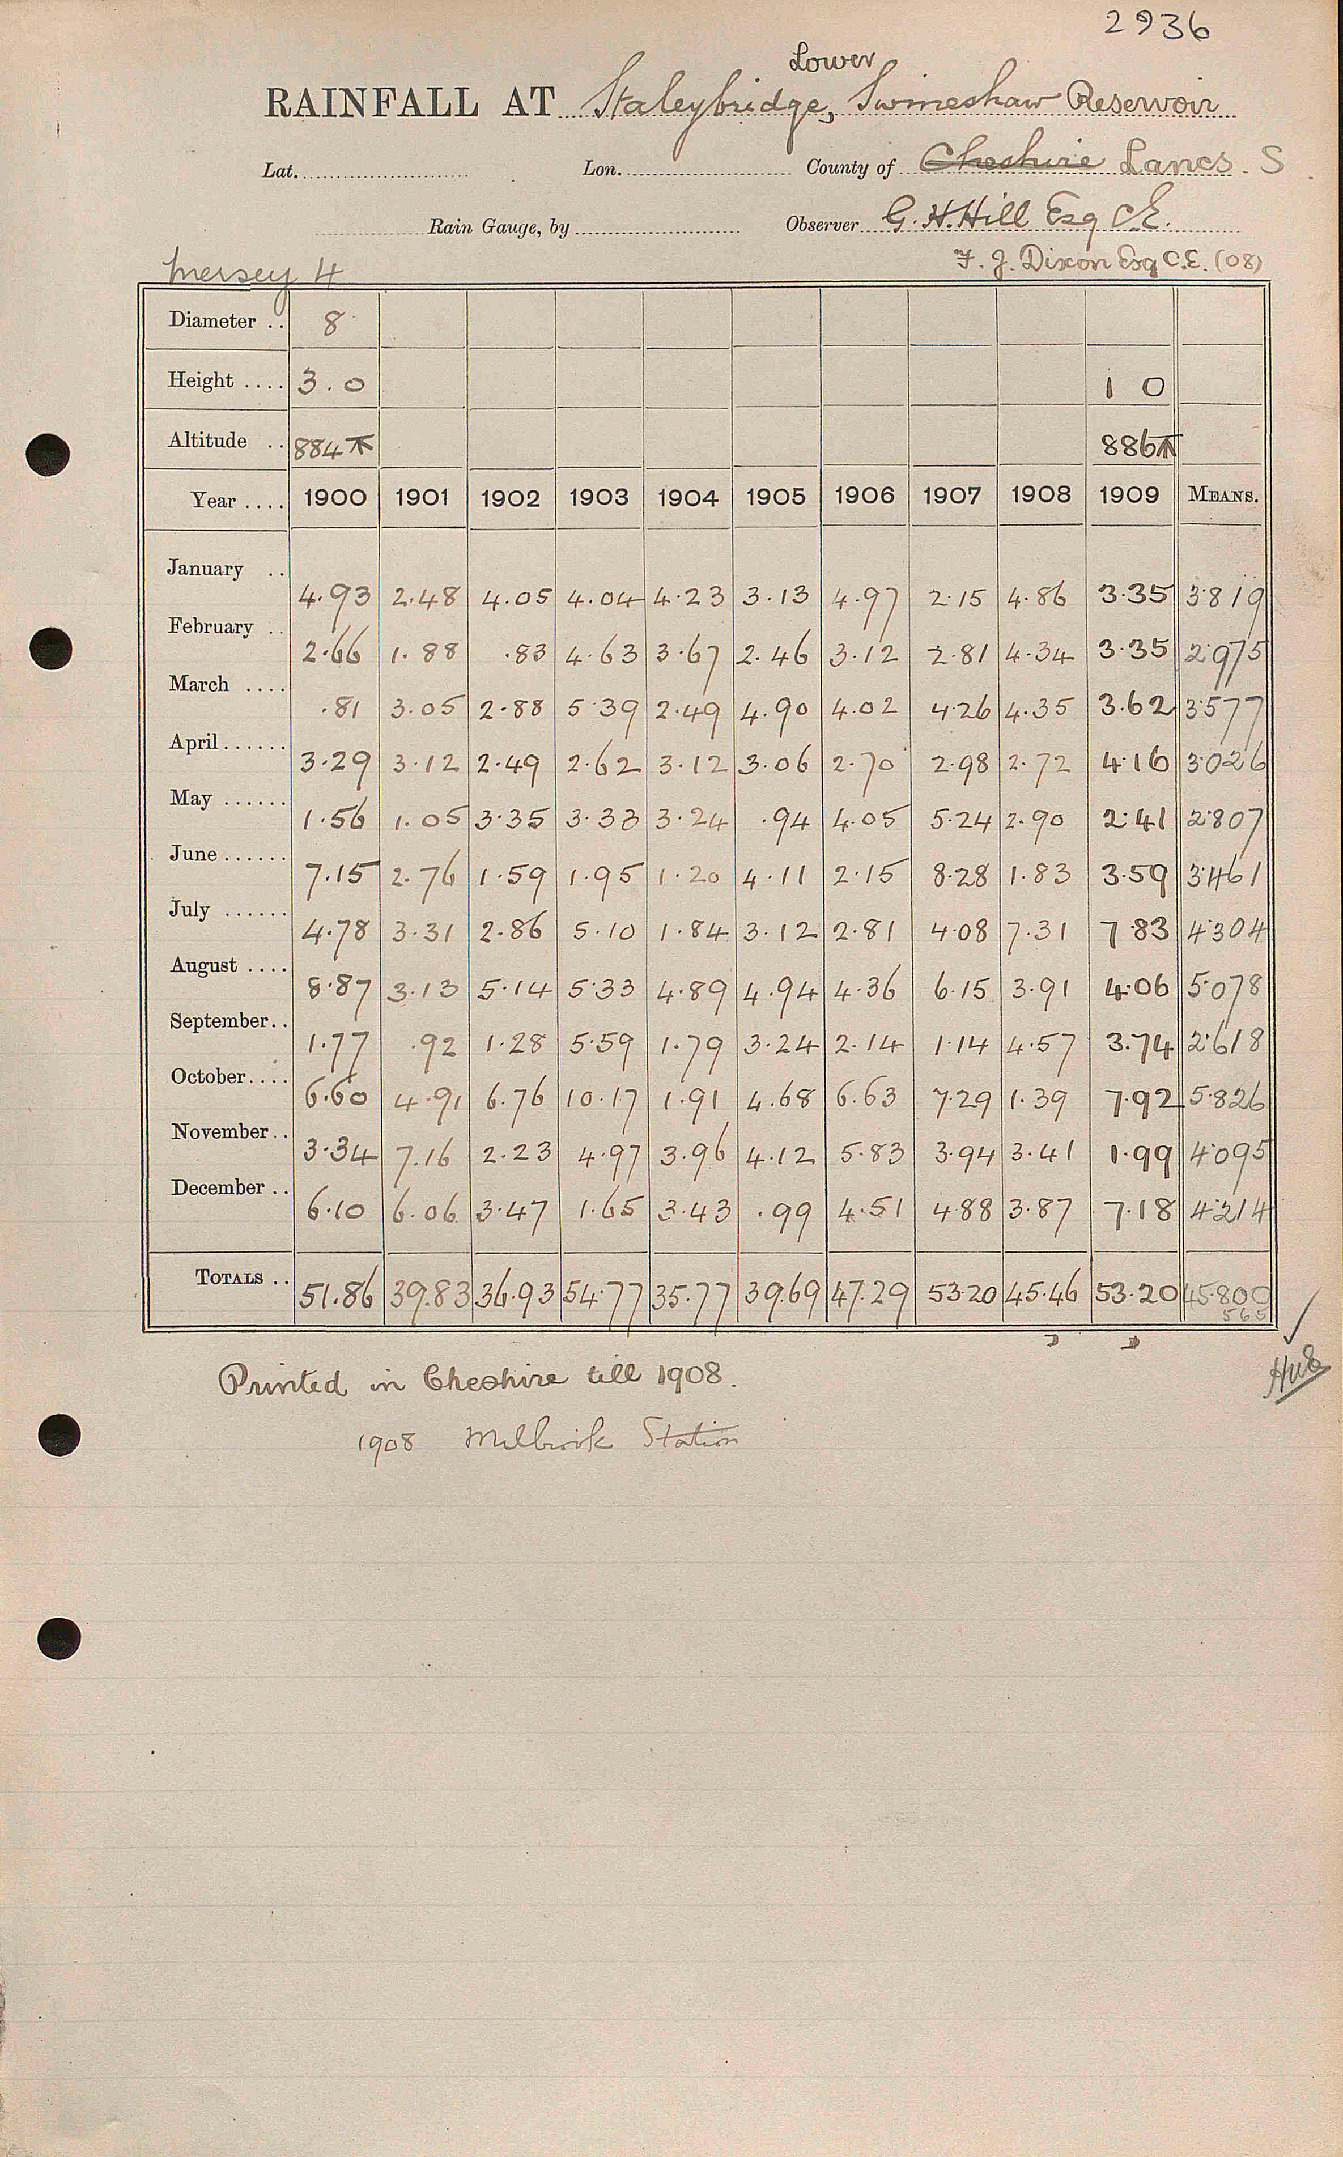 2936
Lower
RAINFALL AT Staleybridge, Swineshaw Reservoir
Lat. Lon. County of Cheshire Lancs. S
Rain Gauge, by Observer G. H. Hill Esq C.E.
Mersey 4 F. J. Dixon Esq C.E. (08)
Diameter .. 8
Height .... 3.0 1 0
Altitude .. 884 886
Year .... 1900 1901 1902 1903 1904 1905 1906 1907 1908 1909 MEANS.
January .. 4.93 2.48 4.05 4.04 4.23 3.13 4.97 2.15 4.86 3.35 3.819
February .. 2.66 1.88 .83 4.63 3.67 2.46 3.12 2.81 4.34 3.35 2.975
March .... .81 3.05 2.88 5.39 2.49 4.90 4.02 4.26 4.35 3.62 3.577
April...... 3.29 3.12 2.49 2.62 3.12 3.06 2.70 2.98 2.72 4.16 3.026
May ...... 1.56 1.05 3.35 3.33 3.24 .94 4.05 5.24 2.90 2.41 2.807
June ...... 7.15 2.76 1.59 1.95 1.20 4.11 2.15 8.28 1.83 3.59 3.461
July ...... 4.78 3.31 2.86 5.10 1.84 3.12 2.81 4.08 7.31 7.83 4.304
August .... 8.87 3.13 5.14 5.33 4.89 4.94 4.36 6.15 3.91 4.06 5.078
September.. 1.77 .92 1.28 5.59 1.79 3.24 2.14 1.14 4.57 3.74 2.618
October.... 6.60 4.91 6.76 10.17 1.91 4.68 6.63 7.29 1.39 7.92 5.826
November.. 3.34 7.16 2.23 4.97 3.96 4.12 5.83 3.94 3.41 1.99 4.095
December .. 6.10 6.06 3.47 1.65 3.43 .99 4.51 4.88 3.87 7.18 4.214
TOTALS .. 51.86 39.83 36.93 54.77 35.77 39.69 47.29 53.20 45.46 53.20 45.800
565
Printed in Cheshire till 1908.
1908 Millbrook Station